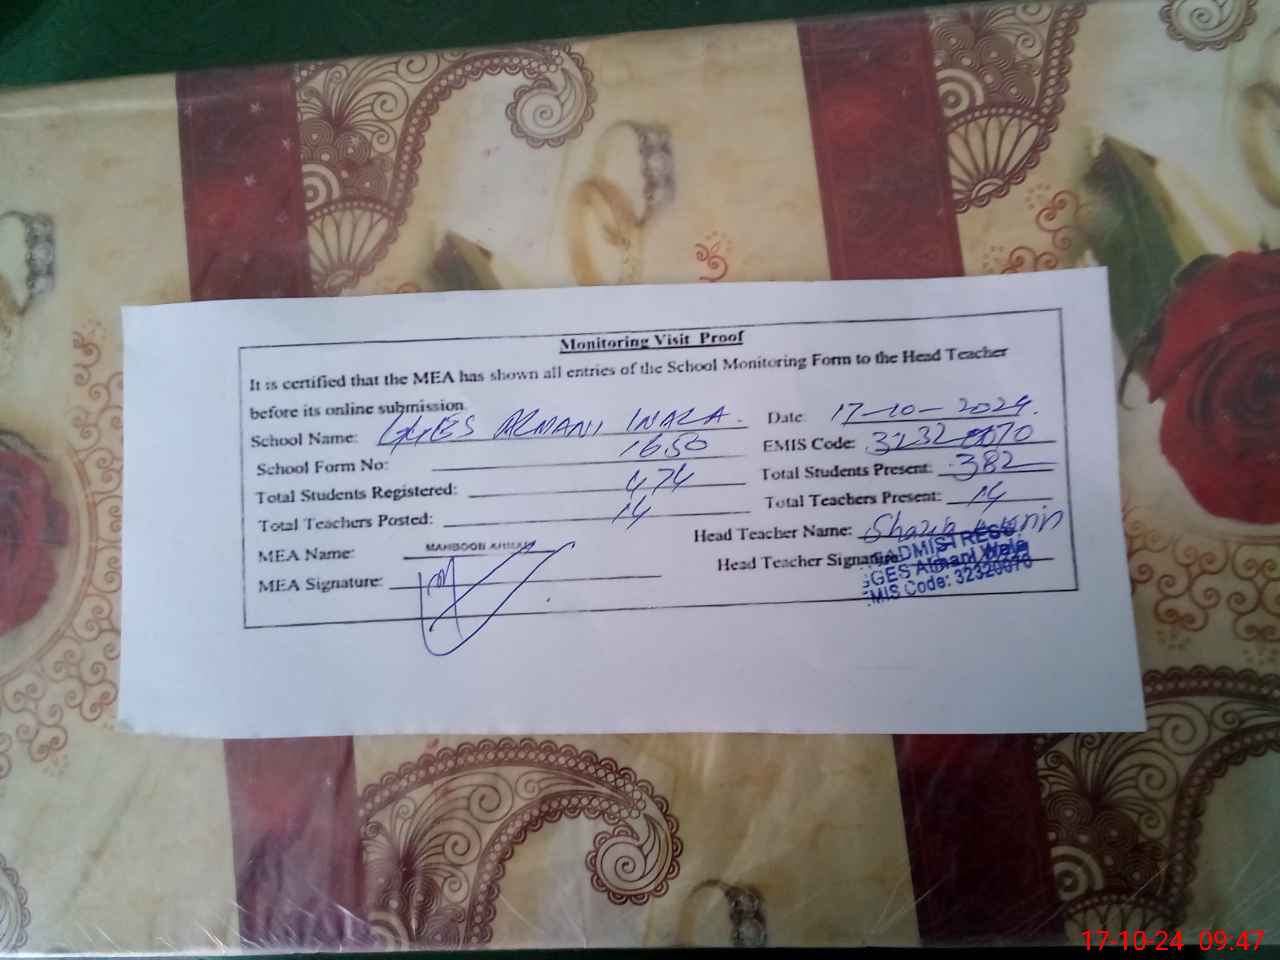 Monitoring Visit Proof
It is certified that the MEA has shown all entries of the School Monitoring Form to the Head Teacher
before its online submission
School Name: GGES ARMANI WALA. Date: 17-10-2024.
School Form No: 1650 EMIS Code: 32320070
Total Students Registered: 474 Total Students Present: 382
Total Teachers Posted: 14 Total Teachers Present: 14
MEA Name: MAHBOOB AHMAD Head Teacher Name: Shazia
MEA Signature: Head Teacher Signature
ADMISTRESS
GGES Armani Wala
EMIS Code: 32320070
17-10-24 09:47